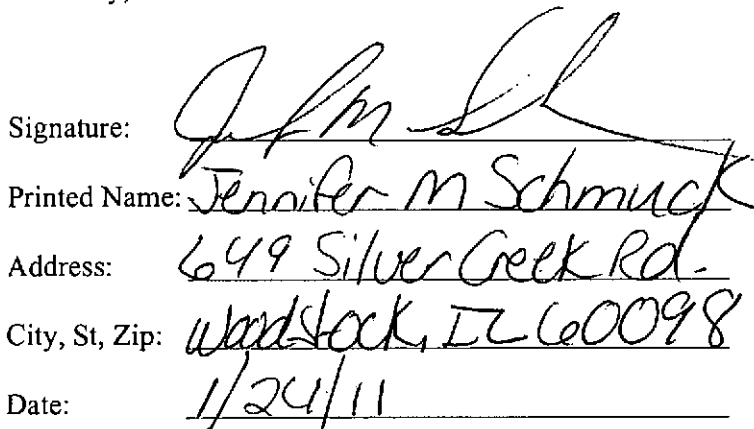 Signature:
Printed Name: Jennifer M Schmuck
Address: 649 Silver Creek Rd.
City, St, Zip: Woodstock, IL 60098
Date: 1/24/11